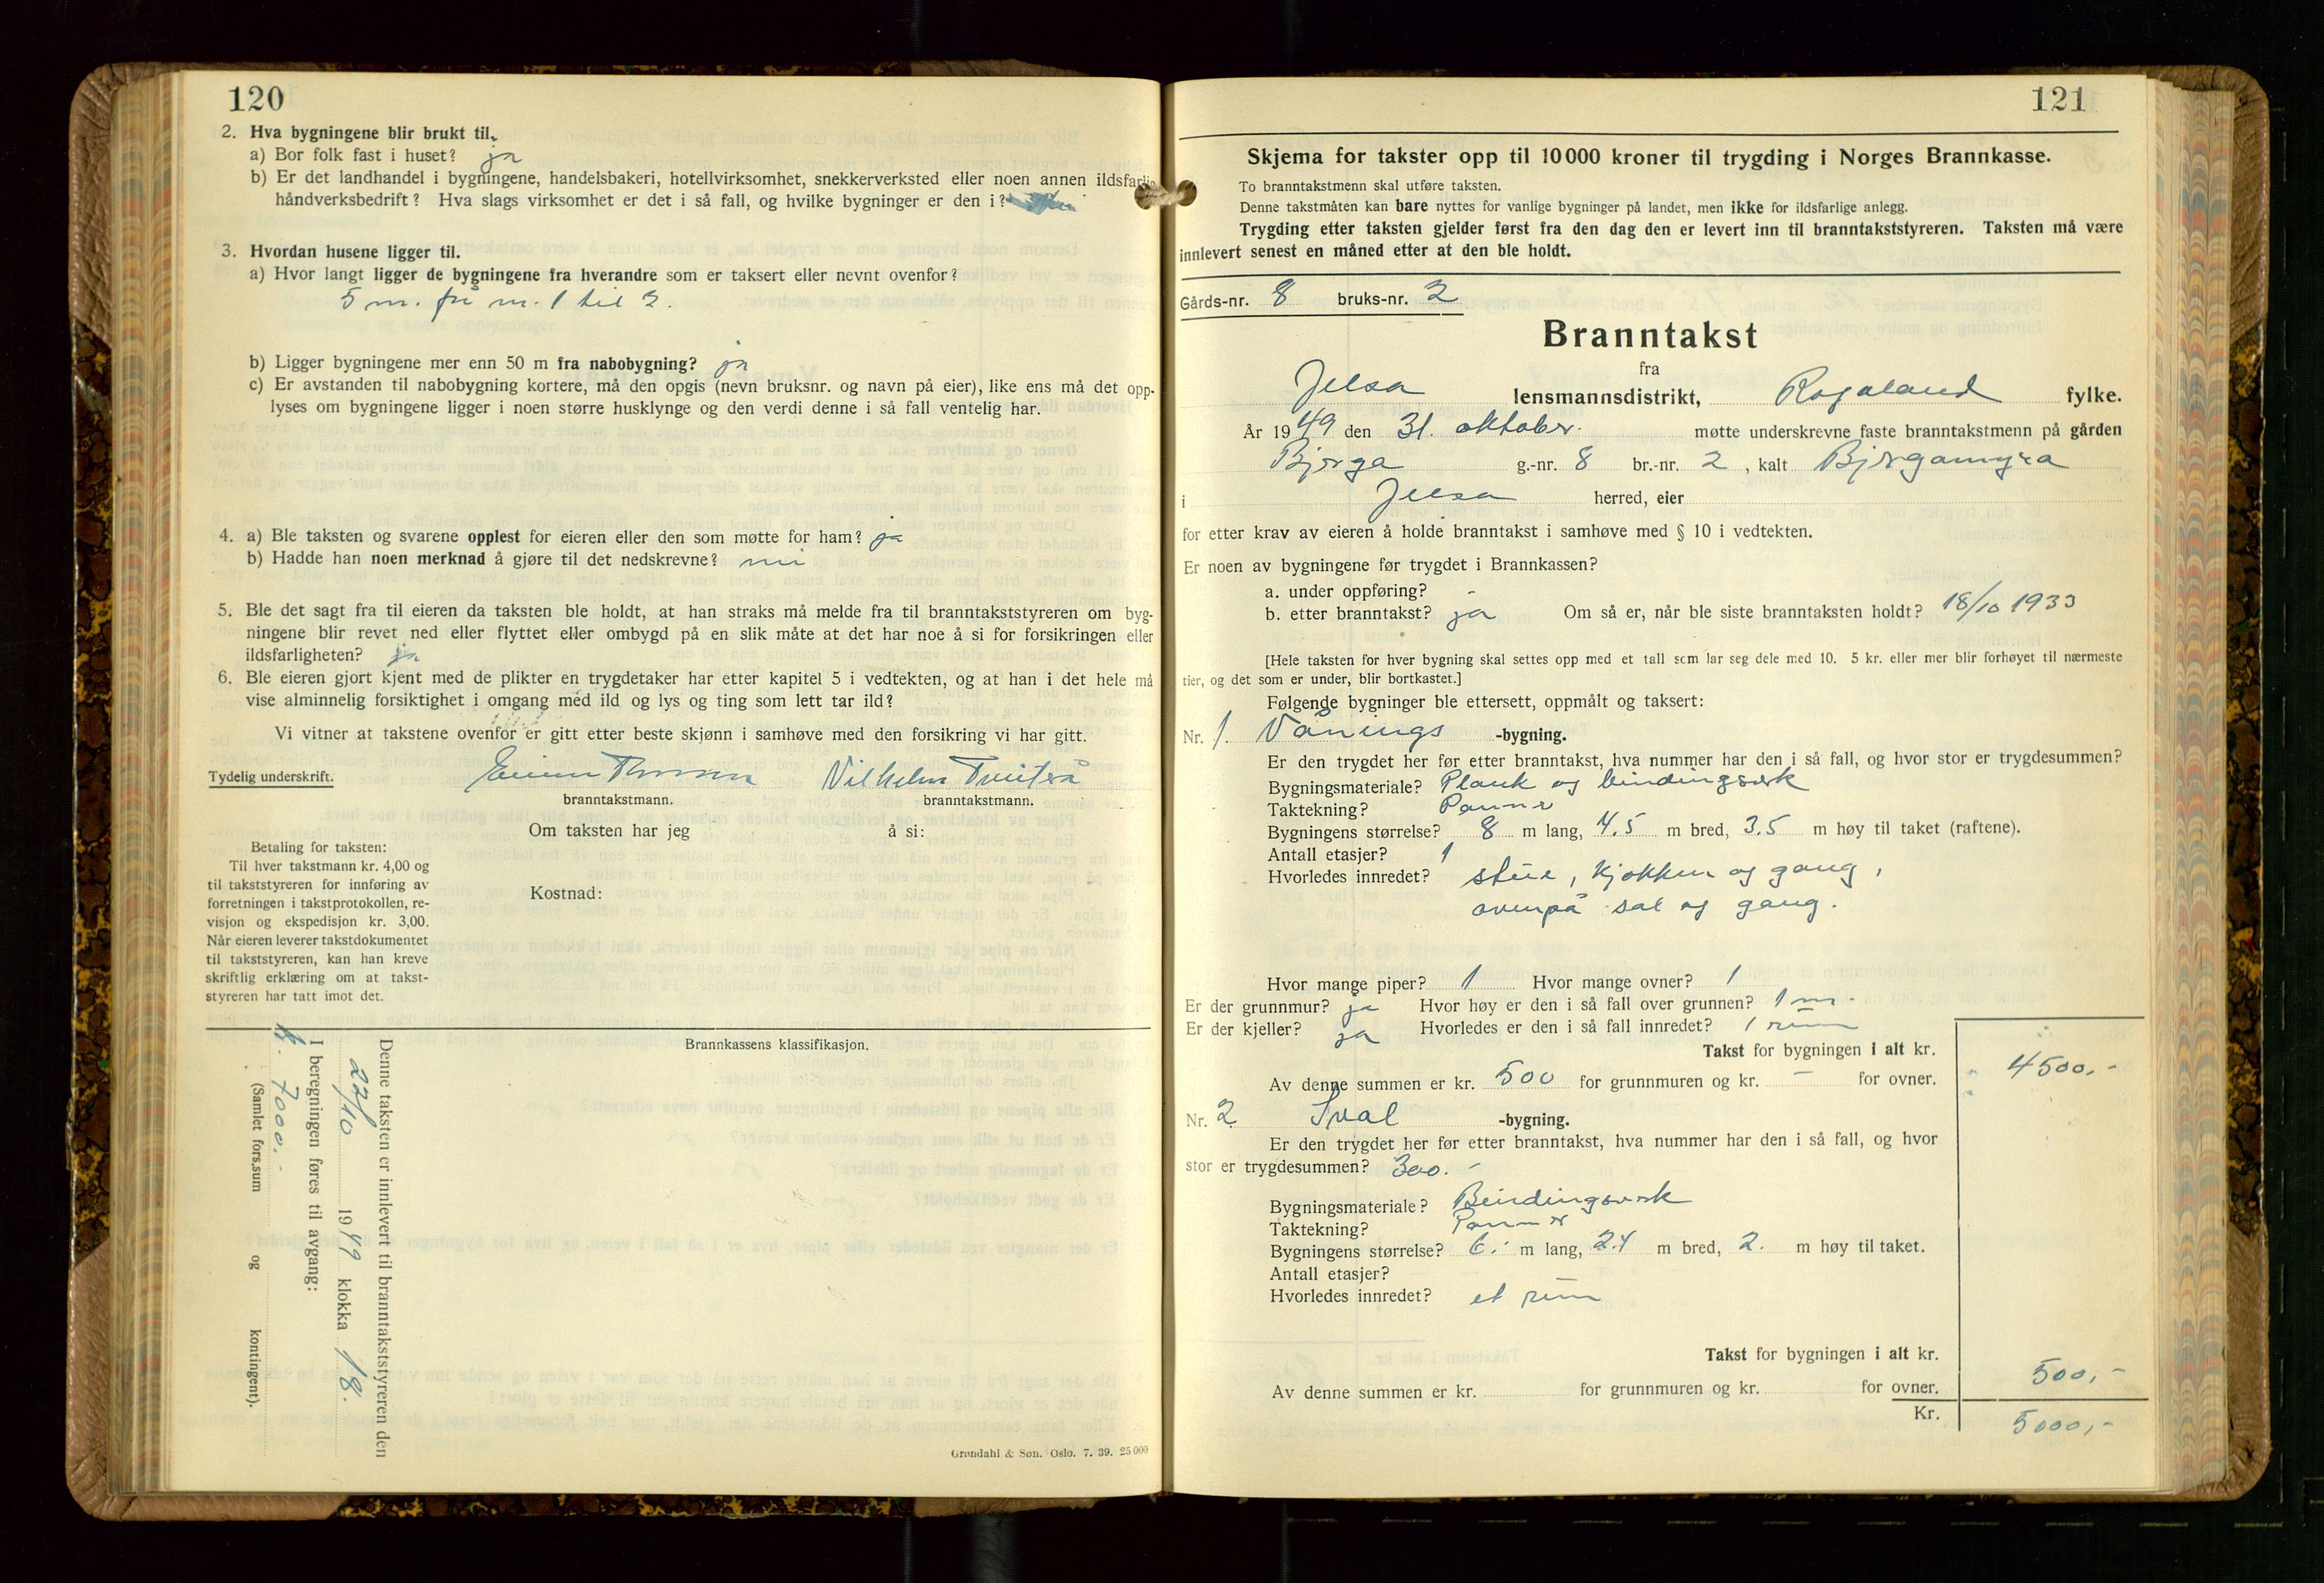 120
2. Hva bygningene blir brukt til.
a) Bor folk fast i huset? ja
b) Er det landhandel i bygningene, handelsbakeri, hotellvirksomhet, snekkerverksted eller noen annen ildsfarlig
håndverksbedrift? Hva slags virksomhet er det i så fall, og hvilke bygninger er den i?
3. Hvordan husene ligger til.
a) Hvor langt ligger de bygningene fra hverandre som er taksert eller nevnt ovenfor?
5 m. fra nr. 1 til 2.
b) Ligger bygningene mer enn 50 m fra nabobygning? ja
c) Er avstanden til nabobygning kortere, må den opgis (nevn bruksnr. og navn på eier), like ens må det opp-
lyses om bygningene ligger i noen større husklynge og den verdi denne i så fall ventelig har.
4. a) Ble taksten og svarene opplest for eieren eller den som møtte for ham? ja
b) Hadde han noen merknad å gjøre til det nedskrevne? nei
5. Ble det sagt fra til eieren da taksten ble holdt, at han straks må melde fra til branntakststyreren om byg-
ningene blir revet ned eller flyttet eller ombygd på en slik måte at det har noe å si for forsikringen eller
ildsfarligheten? ja
6. Ble eieren gjort kjent med de plikter en trygdetaker har etter kapitel 5 i vedtekten, og at han i det hele må
vise alminnelig forsiktighet i omgang med ild og lys og ting som lett tar ild?
Vi vitner at takstene ovenfor er gitt etter beste skjønn i samhøve med den forsikring vi har gitt.
Tydelig underskrift. Vilhelm Tveiterå
branntakstmann. branntakstmann.
Om taksten har jeg å si:
Betaling for taksten:
Til hver takstmann kr. 4,00 og
til takststyreren for innføring av
forretningen i takstprotokollen, re-
visjon og ekspedisjon kr. 3,00.
Når eieren leverer takstdokumentet
til takststyreren, kan han kreve
skriftlig erklæring om at takst-
styreren har tatt imot det.
Kostnad:
Brannkassens klassifikasjon.
Denne taksten er innlevert til branntakststyreren den
22/10 1949 klokka 18.
I beregningen føres til avgang:
k. 7000.-
(Samlet fors.sum og kontingent).
Grøndahl & Søn. Oslo. 7. 39. 25 000
121
Skjema for takster opp til 10 000 kroner til trygding i Norges Brannkasse.
To branntakstmenn skal utføre taksten.
Denne takstmåten kan bare nyttes for vanlige bygninger på landet, men ikke for ildsfarlige anlegg.
Trygding etter taksten gjelder først fra den dag den er levert inn til branntakststyreren. Taksten må være
innlevert senest en måned etter at den ble holdt.
Gårds-nr. 8 bruks-nr. 2
Branntakst
fra
Jelsa lensmannsdistrikt, Rogaland fylke.
År 1949 den 31. oktober. møtte underskrevne faste branntakstmenn på gården
Bjerga g.-nr. 8 br.-nr. 2, kalt Bjergamyra
i Jelsa herred, eier
for etter krav av eieren å holde branntakst i samhøve med § 10 i vedtekten.
Er noen av bygningene før trygdet i Brannkassen?
a. under oppføring?
b. etter branntakst? ja Om så er, når ble siste branntaksten holdt? 18/10 1933
[Hele taksten for hver bygning skal settes opp med et tall som lar seg dele med 10. 5 kr. eller mer blir forhøyet til nærmeste
tier, og det som er under, blir bortkastet.]
Følgende bygninger ble ettersett, oppmålt og taksert:
Nr. 1. Vånings -bygning.
Er den trygdet her før etter branntakst, hva nummer har den i så fall, og hvor stor er trygdesummen?
Bygningsmateriale? Plank og bindingsverk
Taktekning? Panner
Bygningens størrelse? 8 m lang, 4.5 m bred, 3.5 m høy til taket (raftene).
Antall etasjer? 1
Hvorledes innredet? stue, kjøkken og gang,
ovenpå sal og gang.
Hvor mange piper? 1 Hvor mange ovner? 1
Er der grunnmur? ja Hvor høy er den i så fall over grunnen? 1 m.
Er der kjeller? ja Hvorledes er den i så fall innredet? 1 rum
Takst for bygningen i alt kr. 4500,-
Av denne summen er kr. 500 for grunnmuren og kr. - for ovner.
Nr. 2 Sval -bygning.
Er den trygdet her før etter branntakst, hva nummer har den i så fall, og hvor
stor er trygdesummen? 300.-
Bygningsmateriale? Beindingsverk
Taktekning? Panner
Bygningens størrelse? 6.- m lang, 2.4 m bred, 2. m høy til taket.
Antall etasjer?
Hvorledes innredet? et rum
Takst for bygningen i alt kr. 500,-
Av denne summen er kr. for grunnmuren og kr. for ovner.
Kr. 5000,-